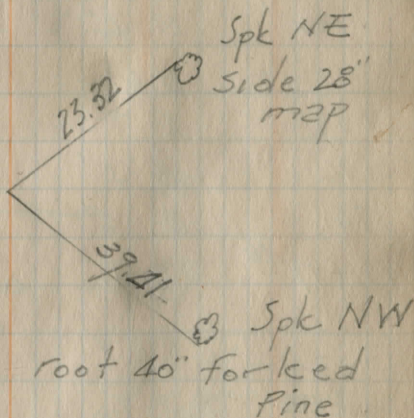 Spk NE
23.32
side 28"
map
39.41
Spk NW
root 40" forked
Pine